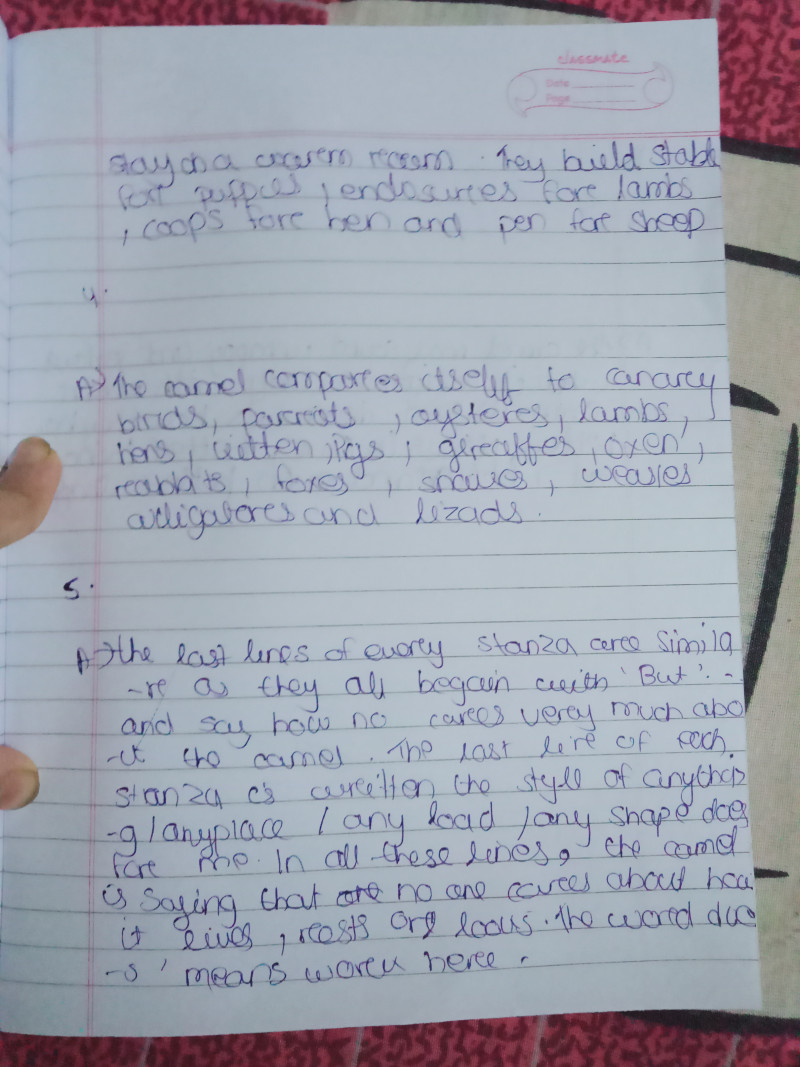 classmate
Date
Page
stay on a warem room. They build stable
fore puppies, enclosures fore lambs
, coops fore hen and pen fore sheep
4.
A→ The camel compares itself to canarey
birds, parrots, oysteres, lambs,
hens, kitten, pigs, gireaffes, oxen,
reabbits, foxes, snakes, weasles
alligateres and lizads.
5.
A→ the last lines of every stanza aree simila
-re as they all begain with 'But'. -
and say how no carees verey much abo
-ut the camel. The last line of each
stanza is wreitten the style of anythin
-g / anyplace / any load / any shape does
fore me. In all these lines, the camel
is saying that no one carees about how
it lives, reests ore looks. The wored doe
-s' means woreks heree.